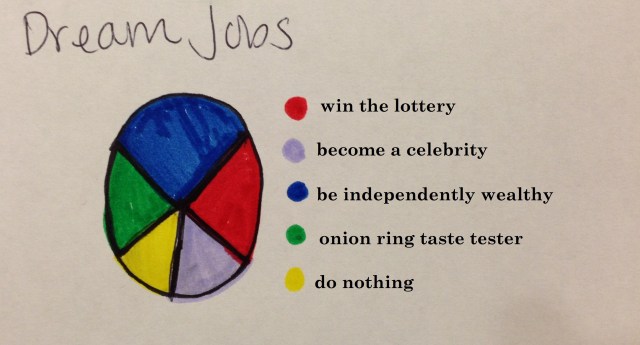 Dream Jobs
win the lottery
become a celebrity
be independently wealthy
onion ring taste tester
do nothing